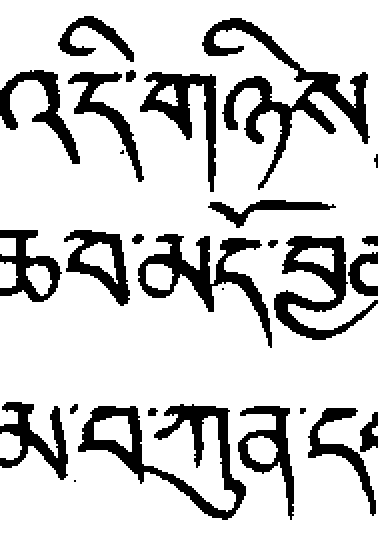 འདི་གཉིས
ཆབ་མདོ་བྱ
མ་བ་ཀུན་